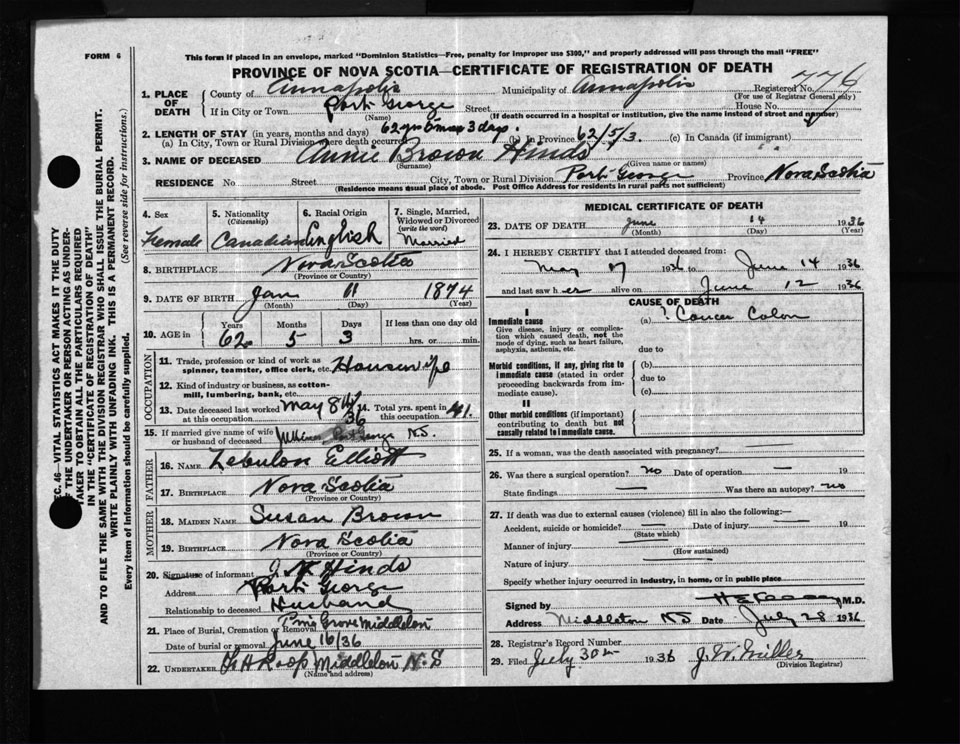 FORM 6
This form if placed in an envelope, marked "Dominion Statistics—Free, penalty for improper use $300," and properly addressed will pass through the mail "FREE"
PROVINCE OF NOVA SCOTIA—CERTIFICATE OF REGISTRATION OF DEATH
1. PLACE OF DEATH County of Annapolis Municipality of Annapolis Registered No. 776
(For use of Registrar General only)
If in City or Town Port George Street House No.
(Name) (If death occurred in a hospital or institution, give the name instead of street and number)
2. LENGTH OF STAY (in years, months and days)
(a) In City, Town or Rural Division where death occurred 62 yrs 5 mos 3 days. (b) In Province 62/5/3. (c) In Canada (if immigrant)
3. NAME OF DECEASED Annie Brown Hinds
(Surname) (Given name or names)
RESIDENCE No Street City, Town or Rural Division Port George Province Nova Scotia
(Residence means usual place of abode. Post Office Address for residents in rural parts not sufficient)
4. Sex Female
5. Nationality (Citizenship) Canadian
6. Racial Origin English
7. Single, Married, Widowed or Divorced (write the word) Married
8. BIRTHPLACE Nova Scotia
(Province or Country)
9. DATE OF BIRTH Jan 11 1874
(Month) (Day) (Year)
10. AGE in Years Months Days If less than one day old
62 5 3 hrs. or min.
OCCUPATION
11. Trade, profession or kind of work as spinner, teamster, office clerk, etc. Housewife
12. Kind of industry or business, as cotton-mill, lumbering, bank, etc.
13. Date deceased last worked at this occupation May 8th 36 14. Total yrs. spent in this occupation 41.
15. If married give name of wife or husband of deceased George N.S.
FATHER
16. NAME Zebulon Elliott
17. BIRTHPLACE Nova Scotia
(Province or Country)
MOTHER
18. MAIDEN NAME Susan Brown
19. BIRTHPLACE Nova Scotia
(Province or Country)
20. Signature of informant J. N. Hinds
Address Port George
Relationship to deceased Husband
21. Place of Burial, Cremation or Removal Pine Grove Middleton
Date of burial or removal June 16/36
22. UNDERTAKER Roop Middleton N.S
(Name and address)
MEDICAL CERTIFICATE OF DEATH
23. DATE OF DEATH June 14 1936
(Month) (Day) (Year)
24. I HEREBY CERTIFY that I attended deceased from:
May 7 1936 to June 14 1936
and last saw her alive on June 12 1936
CAUSE OF DEATH
I
Immediate cause
Give disease, injury or complication which caused death, not the mode of dying, such as heart failure, asphyxia, asthenia, etc.
(a) ? Cancer Colon
due to
Morbid conditions, if any, giving rise to immediate cause (stated in order proceeding backwards from immediate cause).
(b)
due to
(c)
II
Other morbid conditions (if important) contributing to death but not causally related to immediate cause.
25. If a woman, was the death associated with pregnancy?
26. Was there a surgical operation? no Date of operation — 19
State findings — Was there an autopsy? no
27. If death was due to external causes (violence) fill in also the following:—
Accident, suicide or homicide? — Date of injury — 19
(State which)
Manner of injury
(How sustained)
Nature of injury
Specify whether injury occurred in industry, in home, or in public place
Signed by M.D.
Address Middleton NS Date July 28 1936
28. Registrar's Record Number
29. Filed July 30th 1936 J. W. Miller
(Division Registrar)
SEC. 46—VITAL STATISTICS ACT MAKES IT THE DUTY
OF THE UNDERTAKER OR PERSON ACTING AS UNDERTAKER TO OBTAIN ALL THE PARTICULARS REQUIRED
IN THE "CERTIFICATE OF REGISTRATION OF DEATH"
AND TO FILE THE SAME WITH THE DIVISION REGISTRAR WHO SHALL ISSUE THE BURIAL PERMIT.
WRITE PLAINLY WITH UNFADING INK. THIS IS A PERMANENT RECORD.
Every item of information should be carefully supplied. (See reverse side for instructions.)